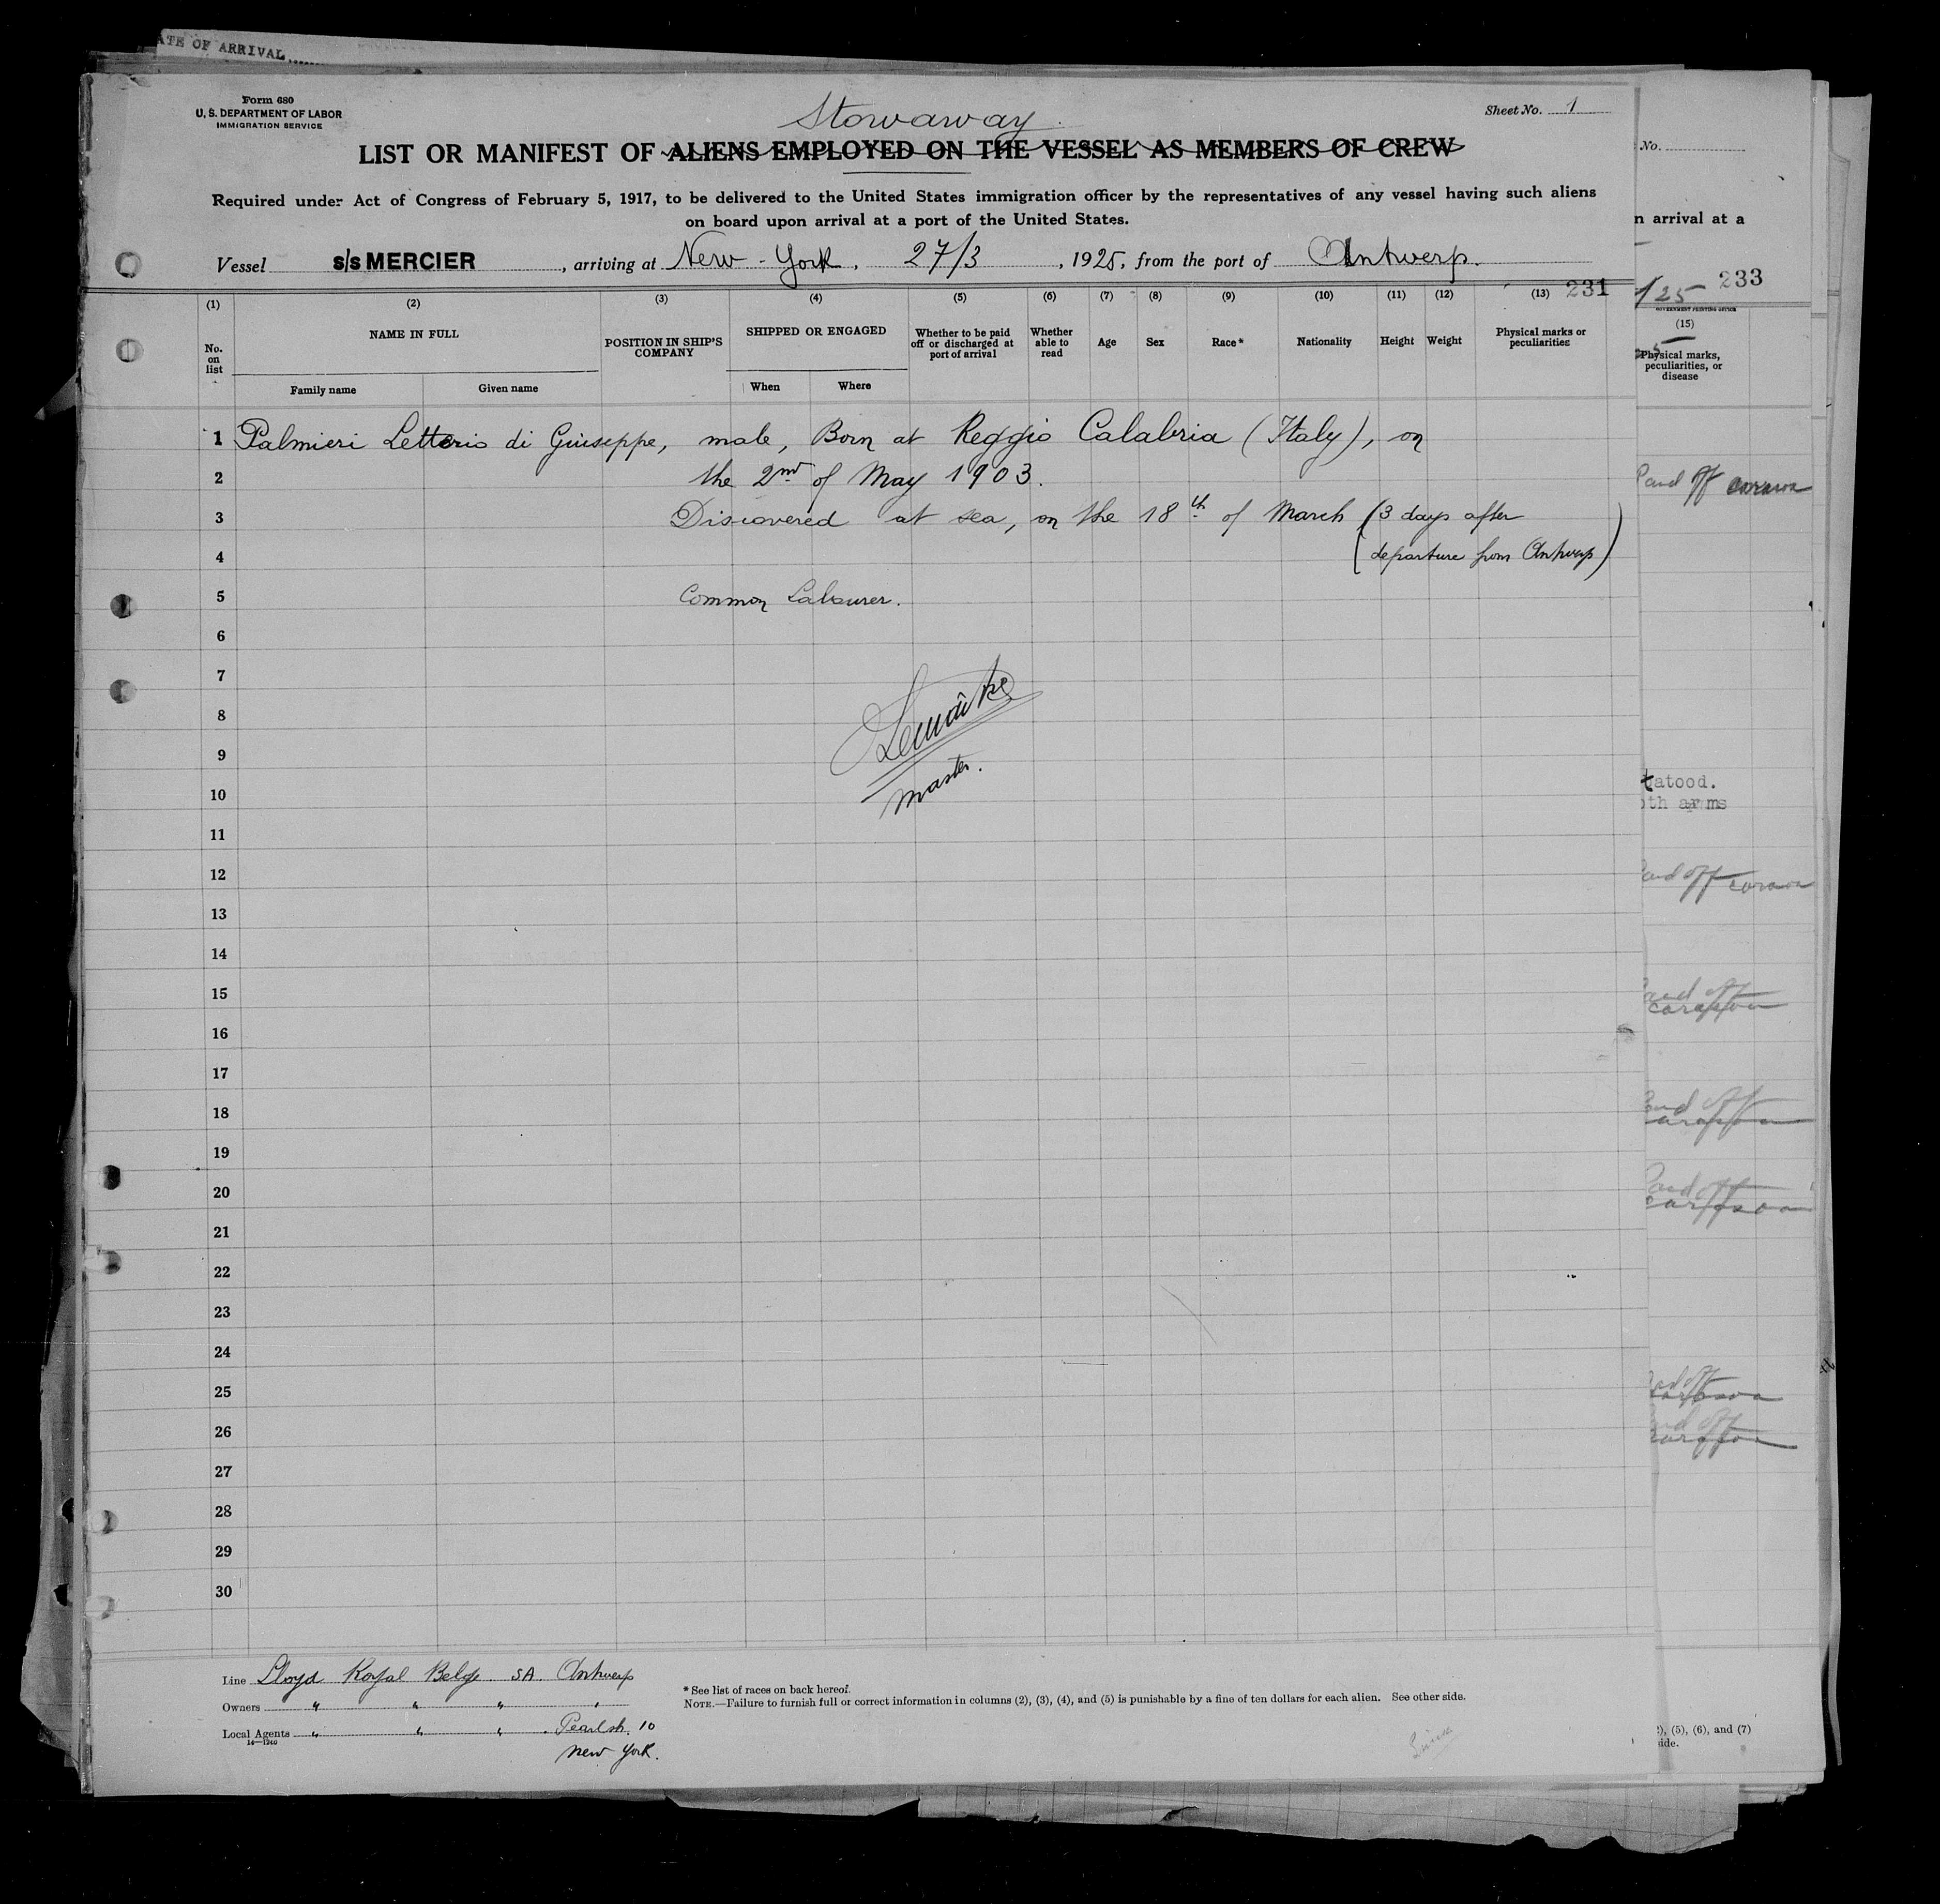 ATE OF ARRIVAL
Form 680
U. S. DEPARTMENT OF LABOR
IMMIGRATION SERVICE
Stowaway.
Sheet No. 1
LIST OR MANIFEST OF ALIENS EMPLOYED ON THE VESSEL AS MEMBERS OF CREW
Required under Act of Congress of February 5, 1917, to be delivered to the United States immigration officer by the representatives of any vessel having such aliens
on board upon arrival at a port of the United States.
Vessel s/s MERCIER, arriving at New-York, 27/3, 1925, from the port of Antwerp.
231
(1) (2) (3) (4) (5) (6) (7) (8) (9) (10) (11) (12) (13)
No. on list
NAME IN FULL
Family name Given name
POSITION IN SHIP'S COMPANY
SHIPPED OR ENGAGED
When Where
Whether to be paid off or discharged at port of arrival
Whether able to read
Age
Sex
Race*
Nationality
Height
Weight
Physical marks or peculiarities
1 Palmieri Letterio di Giuseppe, male, Born at Reggio Calabria (Italy), on
2 the 2nd of May 1903.
3 Discovered at sea, on the 18th of March (3 days after
4 departure from Antwerp)
5 Common Labourer.
6
7
8
9
10
11
12
13
14
15
16
17
18
19
20
21
22
23
24
25
26
27
28
29
30
Master.
Line Lloyd Royal Belge SA. Antwerp
Owners " " " "
Local Agents " " " . Pearl st. 10
14—1240
New York.
*See list of races on back hereof.
NOTE.—Failure to furnish full or correct information in columns (2), (3), (4), and (5) is punishable by a fine of ten dollars for each alien. See other side.
No.
n arrival at a
/25 233
GOVERNMENT PRINTING OFFICE
(15)
Physical marks, peculiarities, or disease
Paid off
tatood.
oth arms
), (5), (6), and (7)
ide.